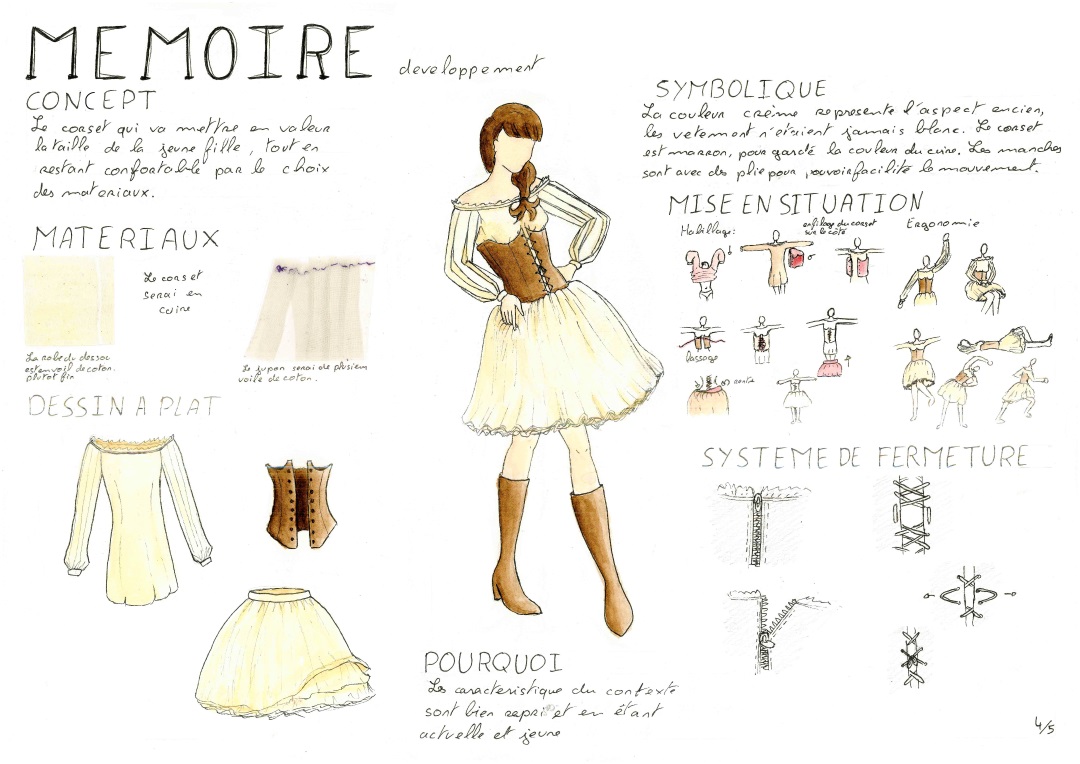 MEMOIRE
developpement
CONCEPT
Le corset qui va mettre en valeur
la taille de la jeune fille, tout en
restant confortable par le choix
des materiaux.
MATERIAUX
Le corset
serai en
cuire
La robe du dessou
est en voil de coton.
plutot fin
Le jupon serai de plusieur
voile de coton.
DESSIN A PLAT
POURQUOI
Les caracteristique du contexte
sont bien repri et en étant
actuelle et jeune
SYMBOLIQUE
La couleur crème represente l'aspect encien,
les vetement n'étaient jamais blanc. Le corset
est marron, pour gardé la couleur du cuire. Les manches
sont avec des plie pour pouvoir facilité le mouvement.
MISE EN SITUATION
Habillage:
enfilage du corset
sur le coté
Ergonomie
lassage
SYSTEME DE FERMETURE
4/5